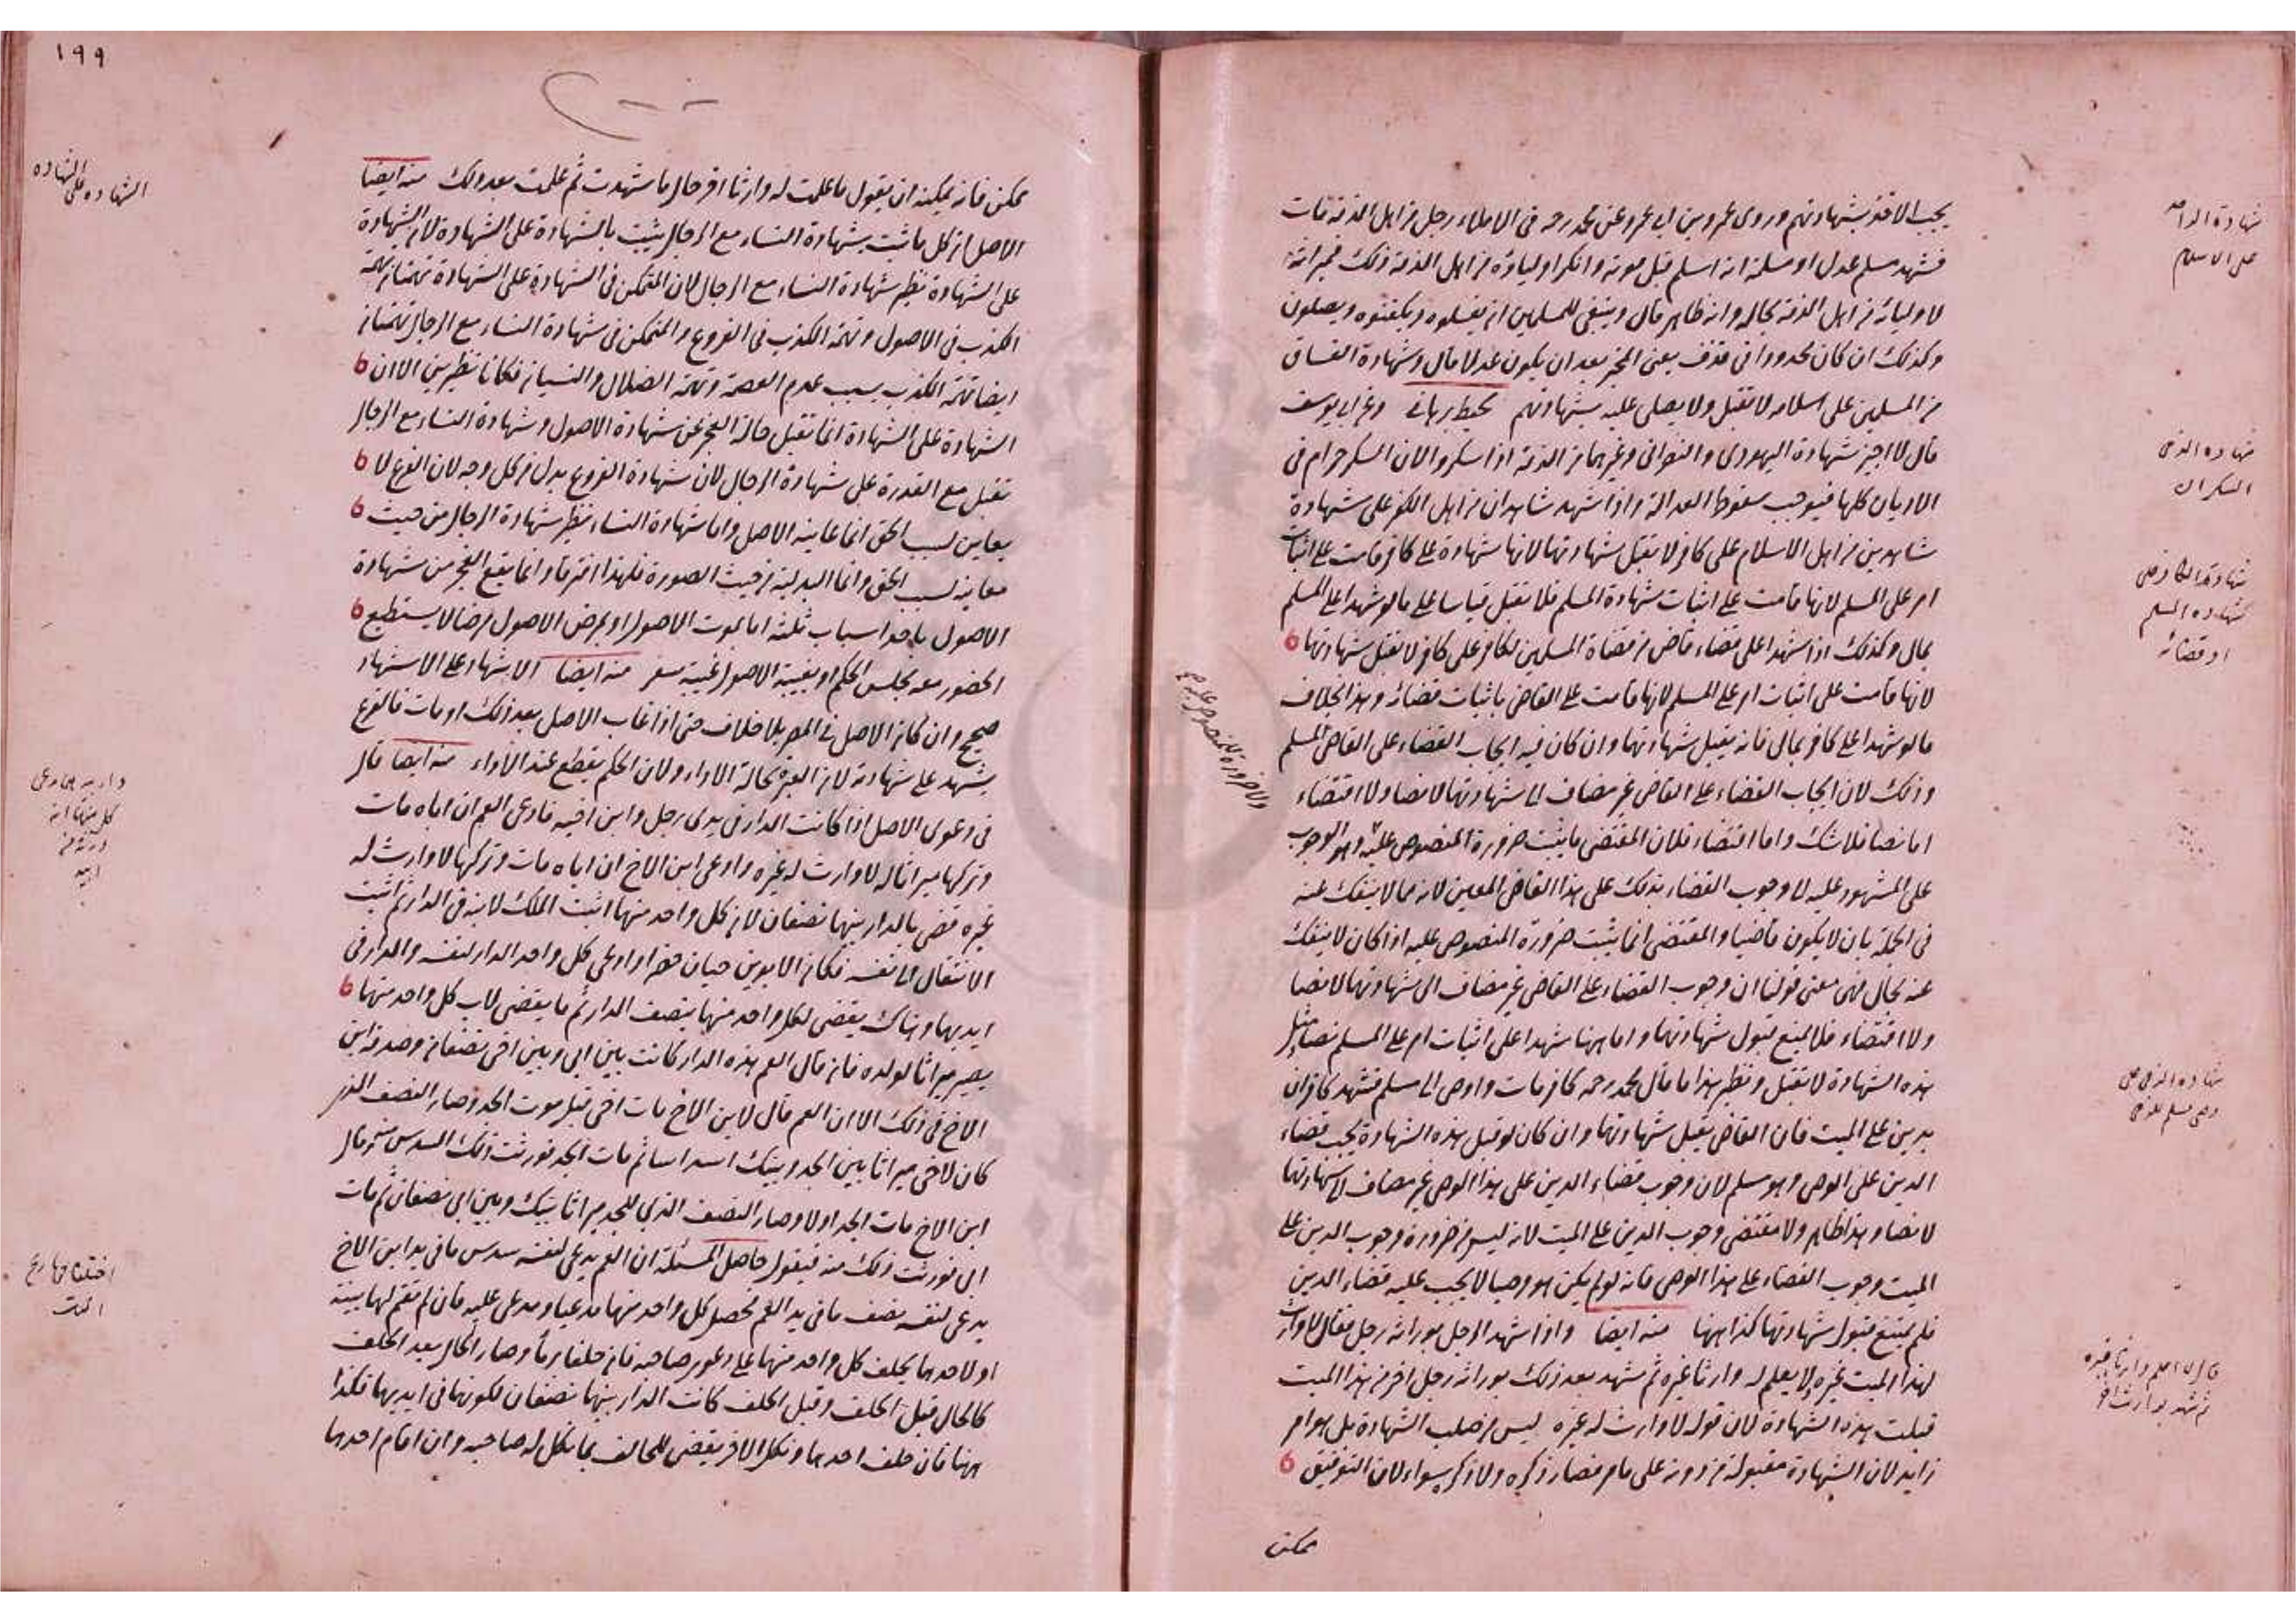 يجب الاخذ بشهادتهم وروى عمرو بن ابى عمرو عن محمد رحه فى الاملاء رجل من اهل الذمة مات
فشهد مسلم عدل او مسلمة انه اسلم قبل موته وانكر اولياؤه من اهل الذمة ذلك فميراثه
لاوليائه من اهل الذمة بحاله وانه ظاهر قال وينبغى للمسلمين ان يغسلوه ويكفنوه ويصلون
وكذلك ان كان محدودا فى قذف يعنى المخبر بعد ان يكون عدلا قال وشهادة الفساق
من المسلمين على اسلامه لا تقبل ولا يصلى عليه بشهادتهم محيط برهانى وعن ابى يوسف
قال لا اجيز شهادة اليهودى والنصرانى وغيرهما من الذمة اذا سكروا لان السكر حرام فى
الاديان كلها فيوجب سقوط العدالة واذا شهد شاهدان من اهل الكفر على شهادة
شاهدين من اهل الاسلام على كافر لا يقبل شهادتهما لانها شهادة على كافر قامت على اثبات
امر على المسلم لانها قامت على اثبات شهادة المسلم فلا يقبل قياسا على ما لو شهدا على المسلم
بمال وكذلك اذا شهدا على قضاء قاض من قضاة المسلمين لكافر على كافر لا تقبل شهادتهما
لانها قامت على اثبات امر على المسلم لانها قامت على القاضى باثبات قضائه وهذا بخلاف
ما لو شهدا على كافر بمال فانه يقبل شهادتهما وان كان فيه ايجاب القضاء على القاضى المسلم
وذلك لان ايجاب القضاء على القاضى غير مضاف الى شهادتهما لا نصا ولا اقتضاء
اما نصا فلا شك واما اقتضاء فلان المقتضى ما يثبت ضرورة المنصوص عليه وهو الوجوب
على المشهود عليه لا وجوب القضاء بذلك على هذا القاضى المعين لانه مما لا ينفك عنه
فى الجملة بان لا يكون قاضيا والمقتضى انما يثبت ضرورة المنصوص عليه اذا كان لا ينفك
عنه بحال فهى معنى قولنا ان وجوب القضاء على القاضى غير مضاف الى شهادتهما لا نصا
ولا اقتضاء فلا يمنع قبول شهادتهما واما ههنا شهدا على اثبات امر على المسلم نصا ومثل
هذه الشهادة لا تقبل ونظير هذا ما قال محمد رحمه كافر مات واوصى الى مسلم فشهد كافران
بدين على الميت فان القاضى يقبل شهادتهما وان كان لو قبل هذه الشهادة يجب قضاء
الدين على الوصى وهو مسلم لان وجوب قضاء الدين على هذا الوصى غير مضاف الى شهادتهما
لا نصا وهذا ظاهر ولا مقتضى وجوب الدين على الميت لانه ليس من ضرورة وجوب الدين على
الميت وجوب القضاء على هذا الوصى فانه لو لم يكن هو وصيا لا يجب عليه قضاء الدين
فلم يمنع قبول شهادتهما كذا ههنا منه ايضا واذا شهد الرجل بوراثة رجل فقال لا وارث
لهذا الميت غيره ولا يعلم له وارثا غيره ثم شهد بعد ذلك بوراثة رجل اخر من هذا الميت
قبلت هذه الشهادة لان قوله لا وارث له غيره ليس من صلب الشهادة بل هو امر
زايد لان الشهادة مقبولة من دونه على ما مر فصار ذكره ولا ذكره سواء لان التوفيق
ممكن
شهادة الواحد
على الاسلام
شهادة الذمى
السكران
شهادة الكافر على
شهادة المسلم
او قضائه
شهادة الذمى على
وصى مسلم
قال لا اعلم وارثا غيره
ثم شهد بوارث اخر
١٩٩
ممكن فانه يمكنه ان يقول ما علمت له وارثا اخر حال ما شهدت ثم علمت بعد ذلك منه ايضا
الاصل ان كل ما ثبت بشهادة النساء مع الرجال يثبت بالشهادة على الشهادة لان الشهادة
على الشهادة نظير شهادة النساء مع الرجال لان المتمكن فى الشهادة على الشهادة تهمتان تهمة
الكذب فى الاصول وتهمة الكذب فى الفروع والمتمكن فى شهادة النساء مع الرجال تهمتان
ايضا تهمة الكذب بسبب عدم العصمة وتهمة الضلال والنسيان فكانا نظيرين الا ان
الشهادة على الشهادة انما تقبل حالة العجز عن شهادة الاصول وشهادة النساء مع الرجال
تقبل مع القدرة على شهادة الرجال لان شهادة الفروع بدل من كل وجه لان الفرع لا
يعاين لسبب الحق انما عاينه الاصل واما شهادة النساء نظير شهادة الرجال من حيث
معاينة لسبب الحق وانما البدلية من حيث الصورة فلهذا افترقا وانما يقع العجز من شهادة
الاصول باحد اسباب ثلثة اما بموت الاصول او بمرض الاصول مرضا لا يستطيع
الحضور معه مجلس الحكم او بغيبة الاصول غيبة سفر منه ايضا الاشهاد على الاشهاد
صحيح وان كان الاصل فى المصر بلا خلاف حتى اذا غاب الاصل بعد ذلك او مات فالفرع
يشهد على شهادته لان العبرة بحالة الاداء ولان الحكم يقطع عند الاداء منه ايضا قال
فى دعوى الاصل اذا كانت الدار فى يدى رجل وابن اخيه فادعى العم ان اباه مات
وتركها ميراثا له لا وارث له غيره وادعى ابن الاخ ان اباه مات وتركها لا وارث له
غيره قضى بالدار بينهما نصفان لان كل واحد منهما اثبت الملك لابيه فى الدار ثم اثبت
الانتقال الى نفسه فكان الابوين حيان حضرا وادعى كل واحد الدار لنفسه والدار فى
ايديهما وهناك يقضى لكل واحد منهما بنصف الدار ثم ما يقضى لاب كل واحد منهما
يصير ميراثا لولده فان قال العم هذه الدار كانت بين ابى وبين اخى نصفان وصدقه ابن
الاخ فى ذلك الا ان العم قال لابن الاخ مات اخى قبل موت الجد وصار النصف الذى
كان لاخى ميراثا بين الجد وبينك اسداسا ثم مات الجد فورثت ذلك السدس منه وقال
ابن الاخ مات الجد اولا وصار النصف الذى للجد ميراثا بينك وبين ابى نصفان ثم مات
ابى فورثت ذلك منه فيقول حاصل المسئلة ان العم يدعى لنفسه سدس ما فى يد ابن الاخ
يدعى لنفسه نصف ما فى يد العم فحصل كل واحد منهما مدعيا ومدعى عليه فان لم تقم لهما بينة
او لاحدهما يحلف كل واحد منهما على دعوى صاحبه فان حلفا برئا وصار الحال بعد الحلف
كالحال قبل الحلف وقبل الحلف كانت الدار بينهما نصفان لكونها فى ايديهما فكذا
ههنا فان حلف احدهما ونكل الاخر يقضى للحالف بما نكل له صاحبه وان اقام احدهما
الشهادة على الشهادة
كل منهما انه
ورثه من
ابيه